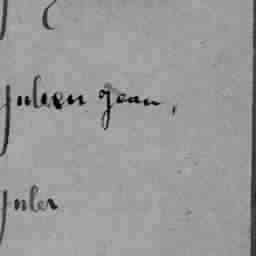 Julien Jean,
Jules